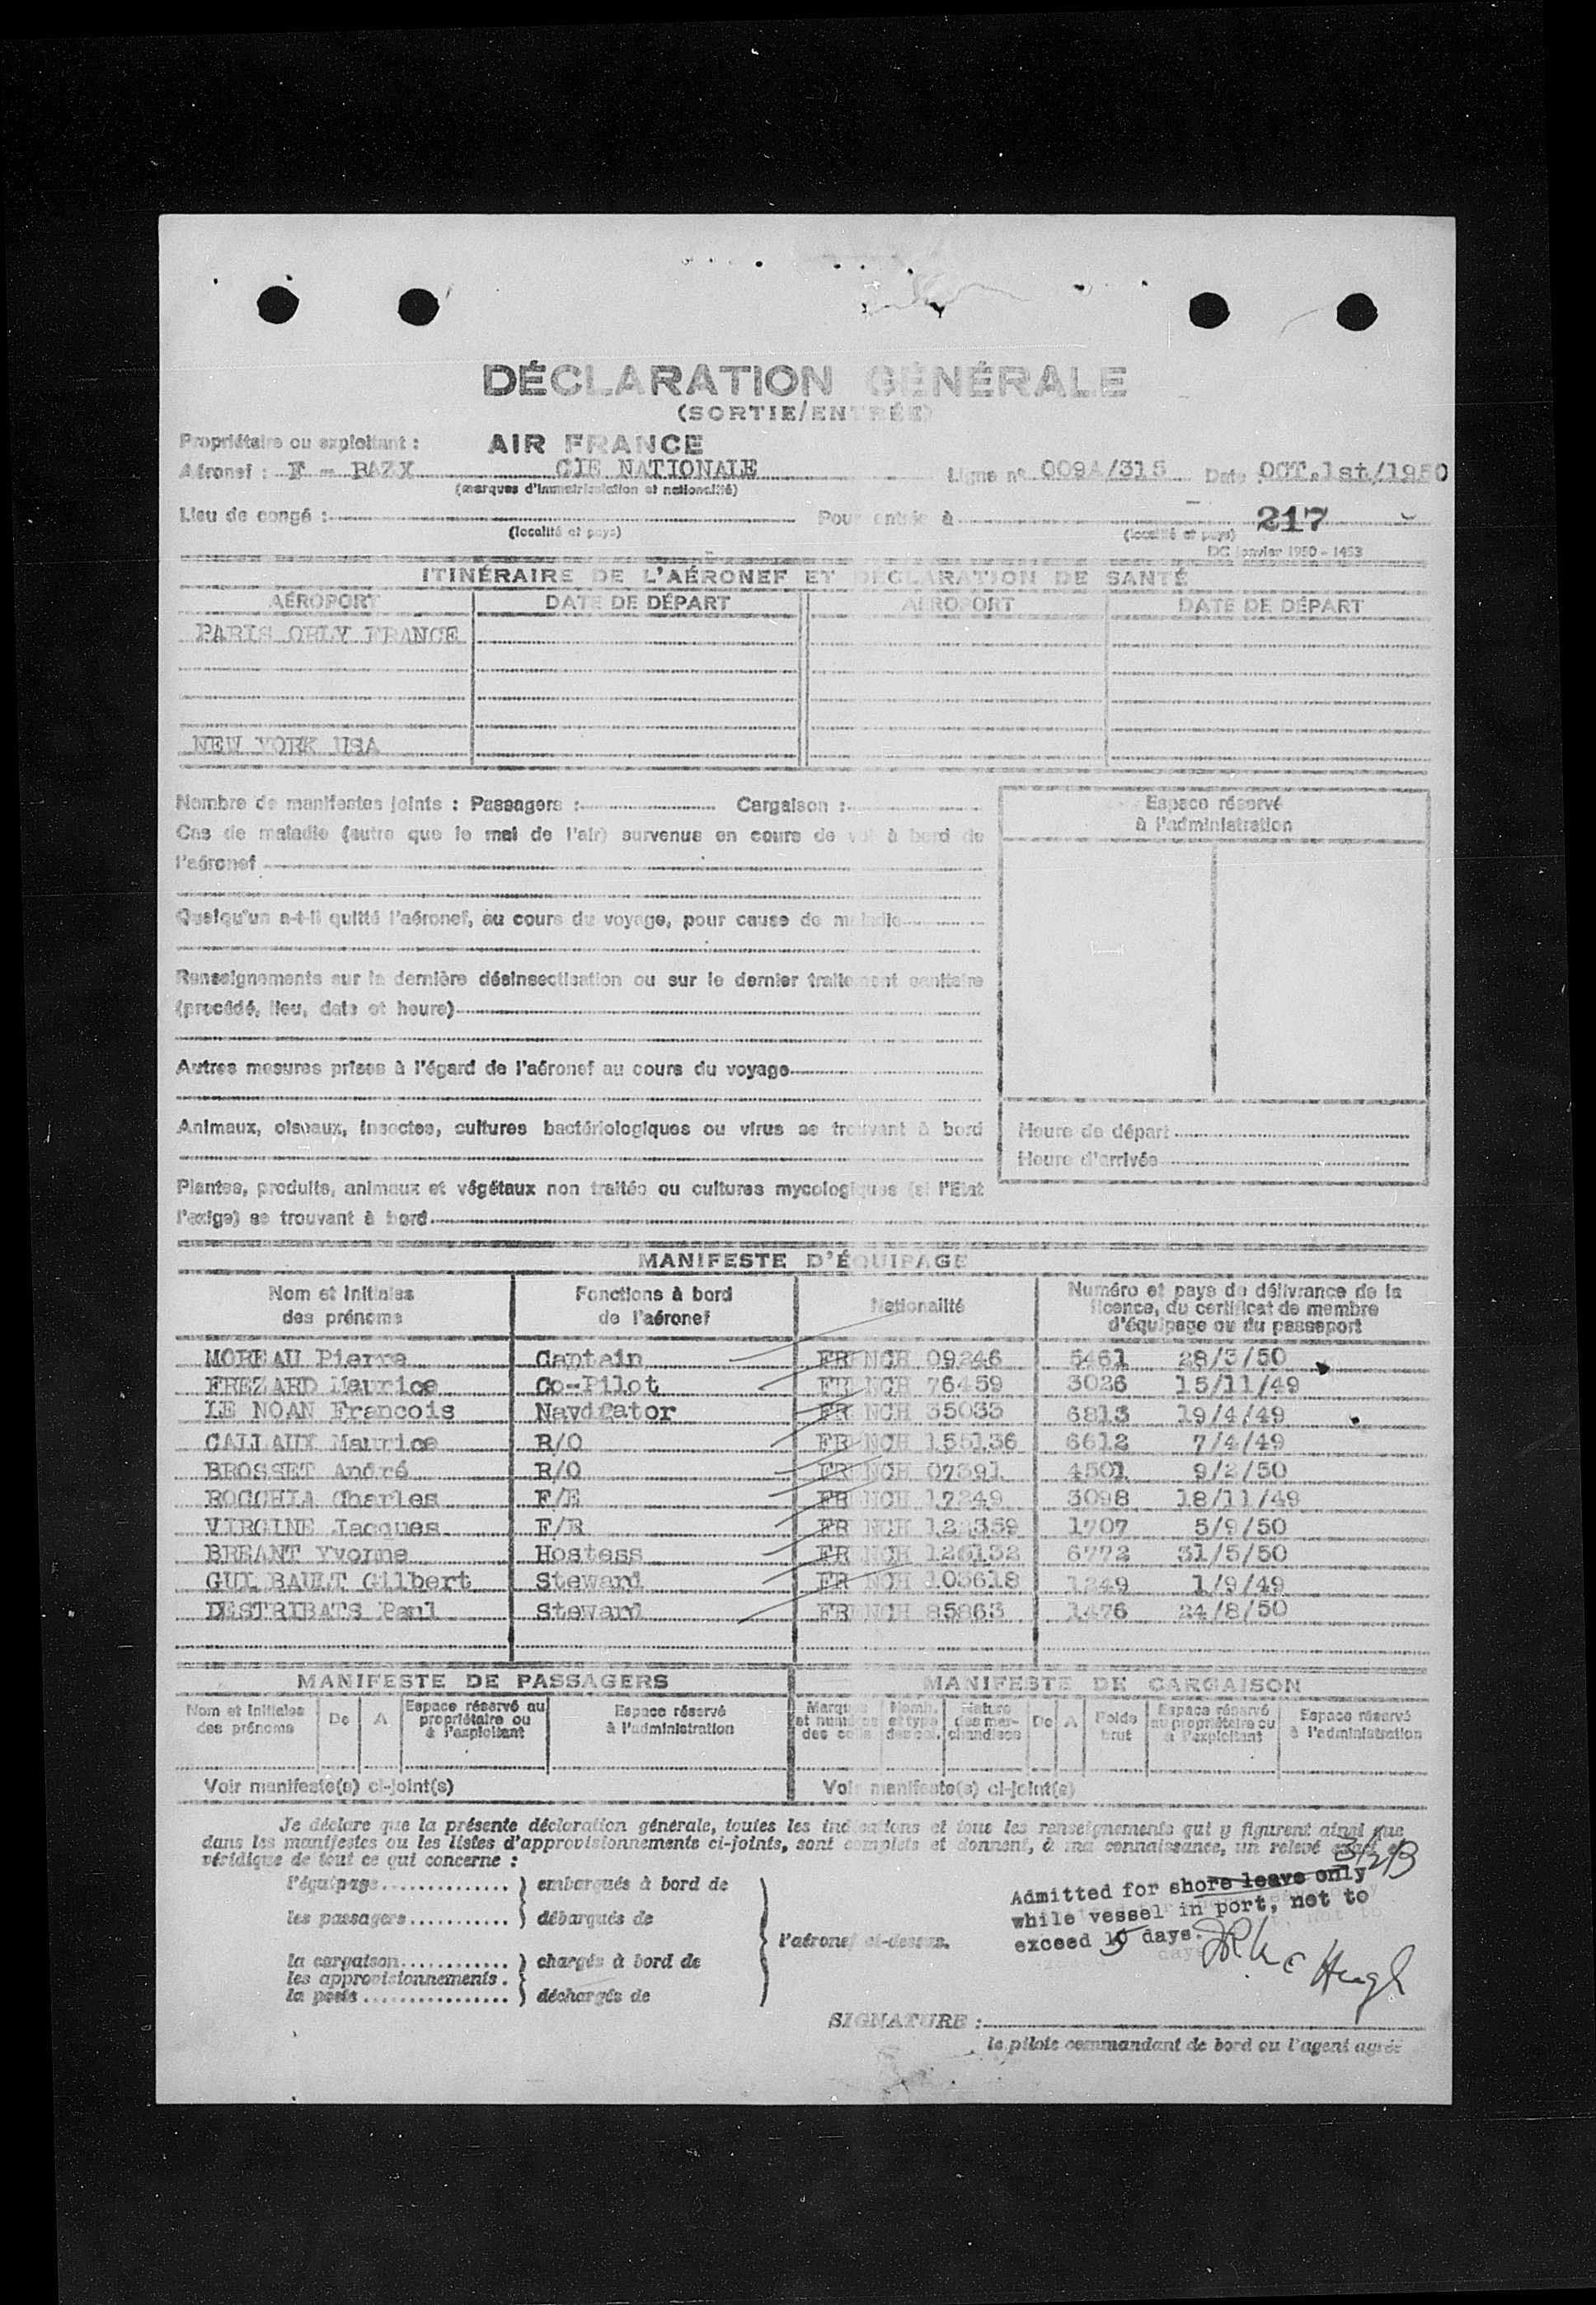 DÉCLARATION GÉNÉRALE
(SORTIE/ENTRÉE)
Propriétaire ou exploitant : AIR FRANCE
Aéronef : F - BAZX CIE NATIONALE Ligne nº 009A/315 Date : OCT.1st/1950
(marques d'immatriculation et nationalité)
Lieu de congé : Pour entrée à 217
(localité et pays) (localité et pays)
DG janvier 1950 - 1453
ITINÉRAIRE DE L'AÉRONEF ET DÉCLARATION DE SANTÉ
AÉROPORT DATE DE DÉPART AÉROPORT DATE DE DÉPART
PARIS ORLY FRANCE
NEW YORK USA
Nombre de manifestes joints : Passagers : Cargaison :
Cas de maladie (autre que le mal de l'air) survenus en cours de vol à bord de
l'aéronef
Quelqu'un a-t-il quitté l'aéronef, au cours du voyage, pour cause de maladie
Renseignements sur la dernière désinsectisation ou sur le dernier traitement sanitaire
(procédé, lieu, date et heure)
Autres mesures prises à l'égard de l'aéronef au cours du voyage
Animaux, oiseaux, insectes, cultures bactériologiques ou virus se trouvant à bord
Plantes, produits, animaux et végétaux non traités ou cultures mycologiques (si l'Etat
l'exige) se trouvant à bord
Espace réservé
à l'administration
Heure de départ
Heure d'arrivée
MANIFESTE D'ÉQUIPAGE
Nom et initiales
des prénoms
Fonctions à bord
de l'aéronef
Nationalité
Numéro et pays de délivrance de la
licence, du certificat de membre
d'équipage ou du passeport
MOREAU Pierre Captain FRENCH 09246 5461 28/3/50
FREZARD Maurice Co-Pilot FRENCH 76459 3026 15/11/49
LE NOAN Francois Navigator FRENCH 35033 6813 19/4/49
CALLAUX Maurice R/O FRENCH 155136 6612 7/4/49
BROSSET André R/O FRENCH 07391 4501 9/2/50
ROCCHIA Charles F/E FRENCH 17249 3098 18/11/49
VIRGINE Jacques F/E FRENCH 1707 5/9/50
BREANT Yvonne Hostess FRENCH 126132 6772 31/5/50
GUILBAULT Gilbert Steward FRENCH 103618 1249 1/9/49
DESTRIBATS Paul Steward FRENCH 85863 1476 24/8/50
MANIFESTE DE PASSAGERS
Nom et initiales
des prénoms
De A
Espace réservé au
propriétaire ou
à l'exploitant
Espace réservé
à l'administration
Voir manifeste(s) ci-joint(s)
MANIFESTE DE CARGAISON
Marques
et numéros
des colis
Nomb.
et type
des col.
Nature
des mar-
chandises
De A
Poids
brut
Espace réservé
au propriétaire ou
à l'exploitant
Espace réservé
à l'administration
Voir manifeste(s) ci-joint(s)
Je déclare que la présente déclaration générale, toutes les indications et tous les renseignements qui y figurent ainsi que
dans les manifestes ou les listes d'approvisionnements ci-joints, sont complets et donnent, à ma connaissance, un relevé exact et
véridique de tout ce qui concerne :
l'équipage.............. ) embarqués à bord de
les passagers........... ) débarqués de
la cargaison............ ) chargés à bord de
les approvisionnements .
la poste ................ ) déchargés de
l'aéronef ci-dessus.
Admitted for shore leave only
while vessel in port, not to
exceed 10 days.
SIGNATURE :
le pilote commandant de bord ou l'agent agréé